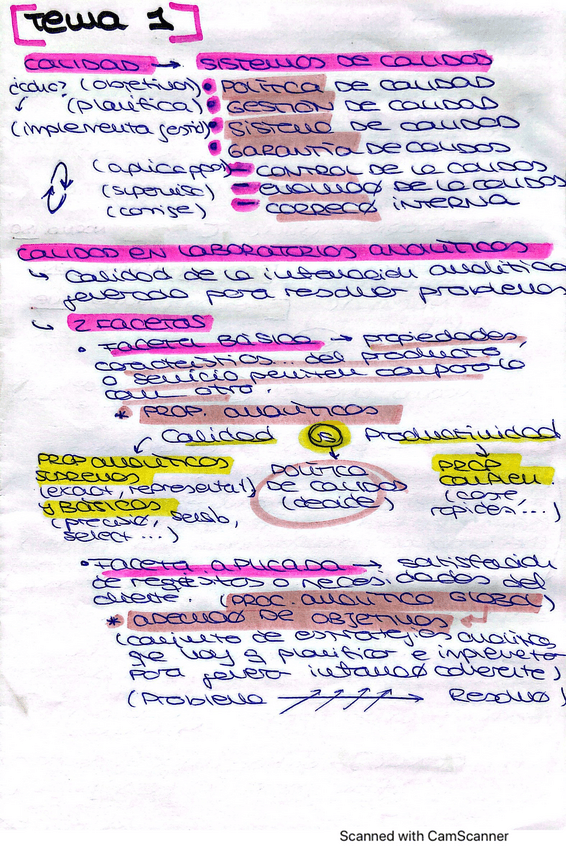 [Tema 1]
CALIDAD → SISTEMAS DE CALIDAD
(objetivos) • POLÍTICA DE CALIDAD
(planifica) • GESTIÓN DE CALIDAD
(implementa gestió) • SISTEMA DE CALIDAD
• GARANTÍA DE CALIDAD
- CONTROL DE LA CALIDAD
(supervisa) - EVALUACIÓ DE LA CALIDAD
(corrige) - CORRECIÓ INTERNA
CALIDAD EN LABORATORIOS ANALÍTICOS
↳ Calidad de la información analítica
generada para resolver problemas
↳ 2 FACETAS
• FACETA BÁSICA → propiedades,
características... del producto
o servicio permiten compararlo
con otro.
* PROP. ANALÍTICAS
Calidad VS Productividad
PROP ANALÍTICAS
SUPREMAS
(exact, representat)
y BÁSICAS
(precisió, sensib,
select...)
POLÍTICA
DE CALIDAD
(decide)
PROP
COMPLEM.
(coste,
rapidez...)
• FACETA APLICADA → satisfacción
de requisitos o necesidades del
cliente. (PROC. ANALÍTICO GLOBAL)
* ADECUACIÓ DE OBJETIVOS
(conjunto de estrategias analíticas
que voy a planificar e implementar
para generar informació coherente)
(Problema → Resolució)
Scanned with CamScanner